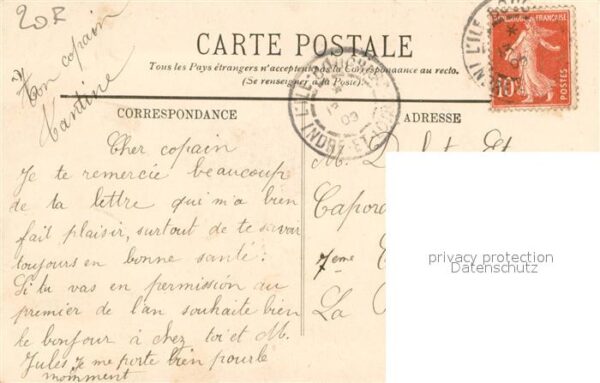 20F
CARTE POSTALE
Tous les Pays étrangers n'acceptent pas la Correspondance au recto.
(Se renseigner à la Poste).
Ton copain
CORRESPONDANCE
ADRESSE
Cher copain
Je te remercie beaucoup
de ta lettre qui m'a bien
fait plaisir, surtout de te savoir
toujours en bonne santé.
Si tu vas en permission au
premier de l'an souhaite bien
le bonjour à chez toi et M.
Jules Je me porte bien pour le
momment
M.
Capora
7eme
La
L'ILE-BOUCHARD
INDRE-ET-LOIRE
09
FRANÇAISE
10c
POSTES
L'ILE BOUC
09
privacy protection
Datenschutz